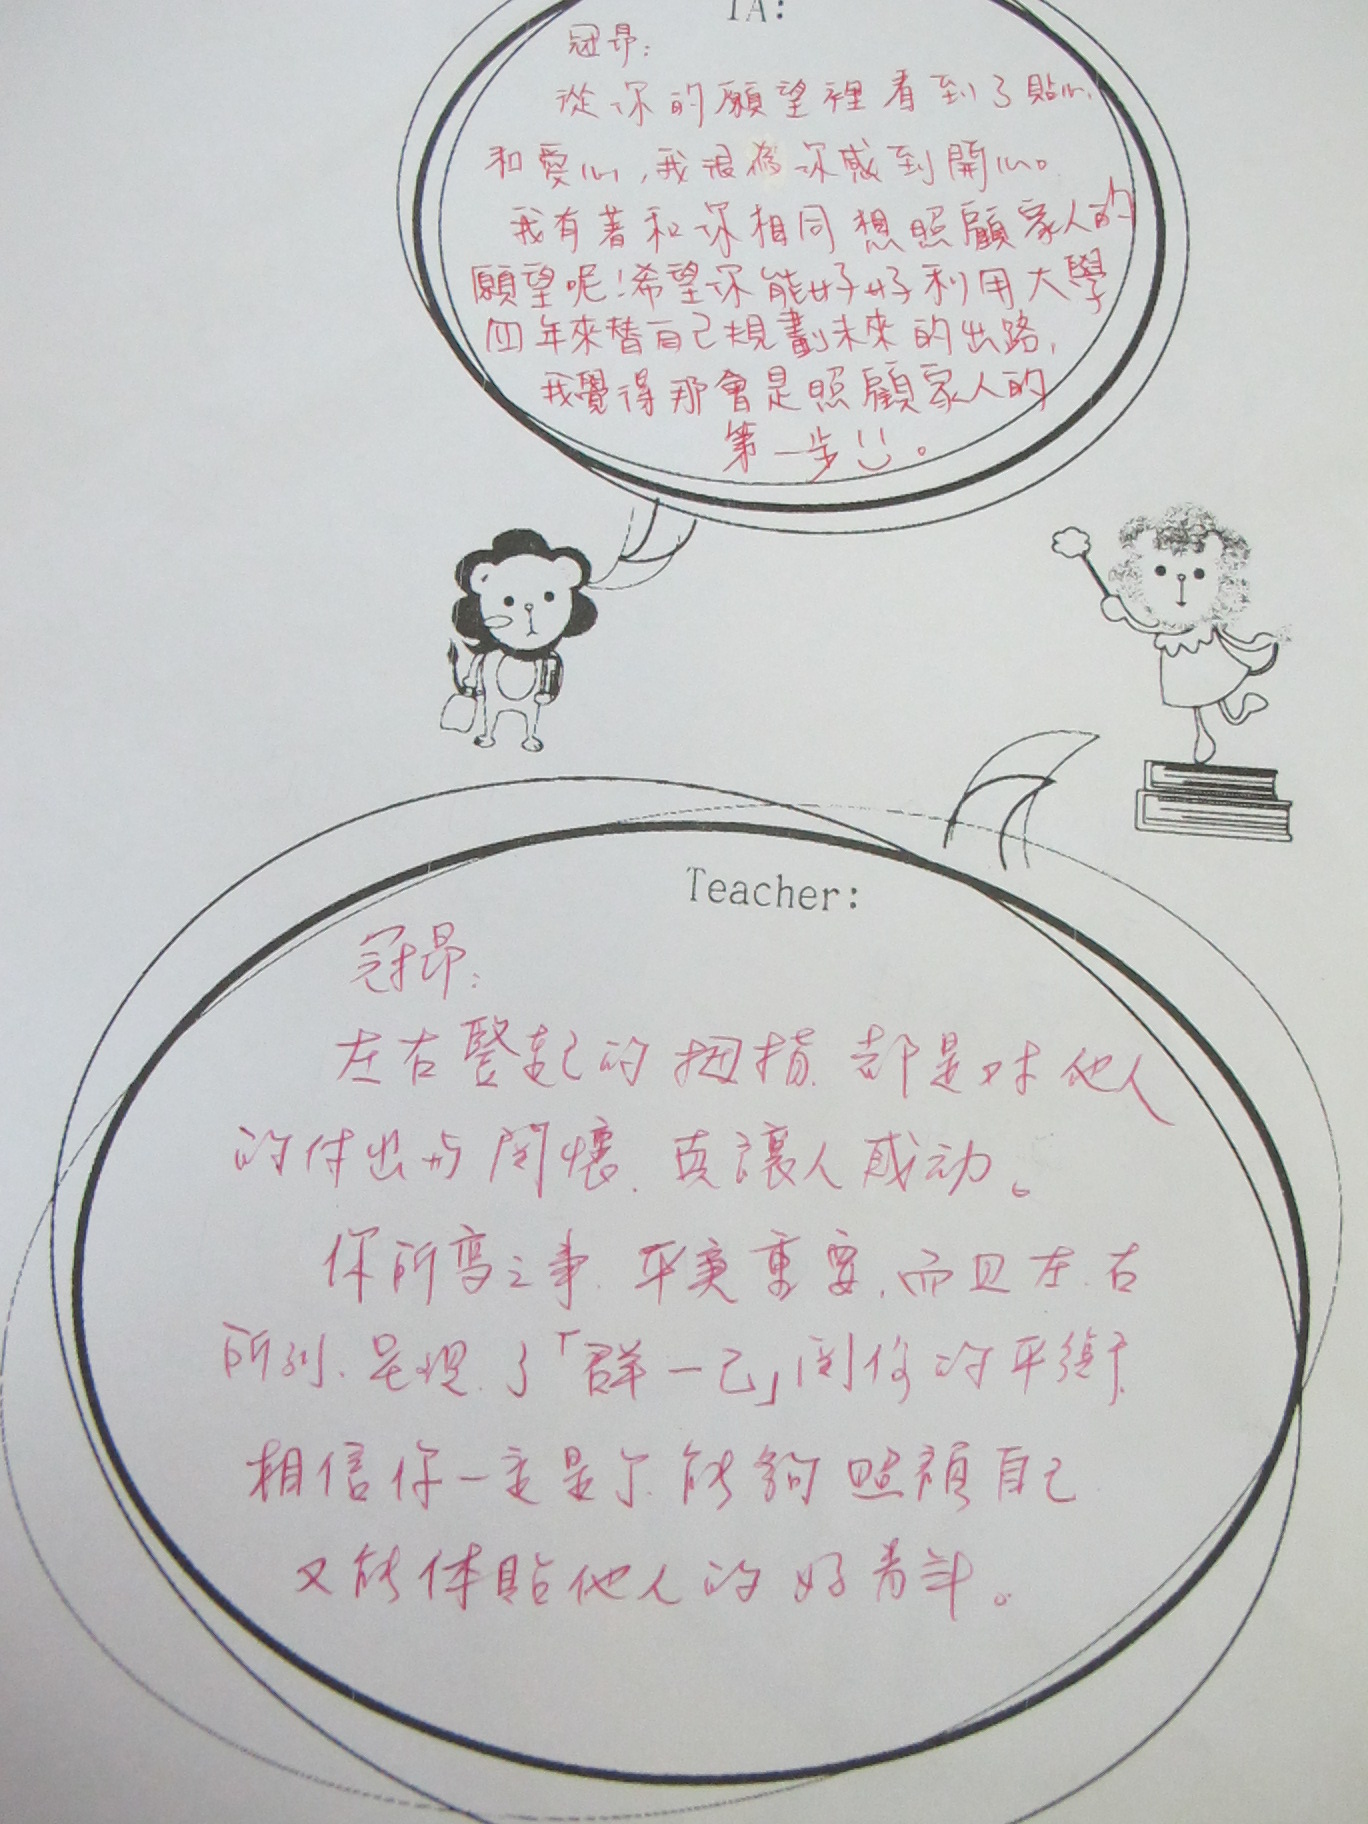 TA:
冠昂:
從你的願望裡看到了貼心
和愛心,我很為你感到開心。
我有著和你相同想照顧家人的
願望呢!希望你能好好利用大學
四年來替自己規劃未來的出路,
我覺得那會是照顧家人的
第一步。
Teacher:
冠昂:
左右豎起的拇指、都是对他人
的付出与関懷、真讓人感动。
你所寫之事、平實重要,而且左、右
所列、呈現了「群一己」関係的平衡、
相信你一定是个能夠照顧自己
又能体貼他人的好青年。